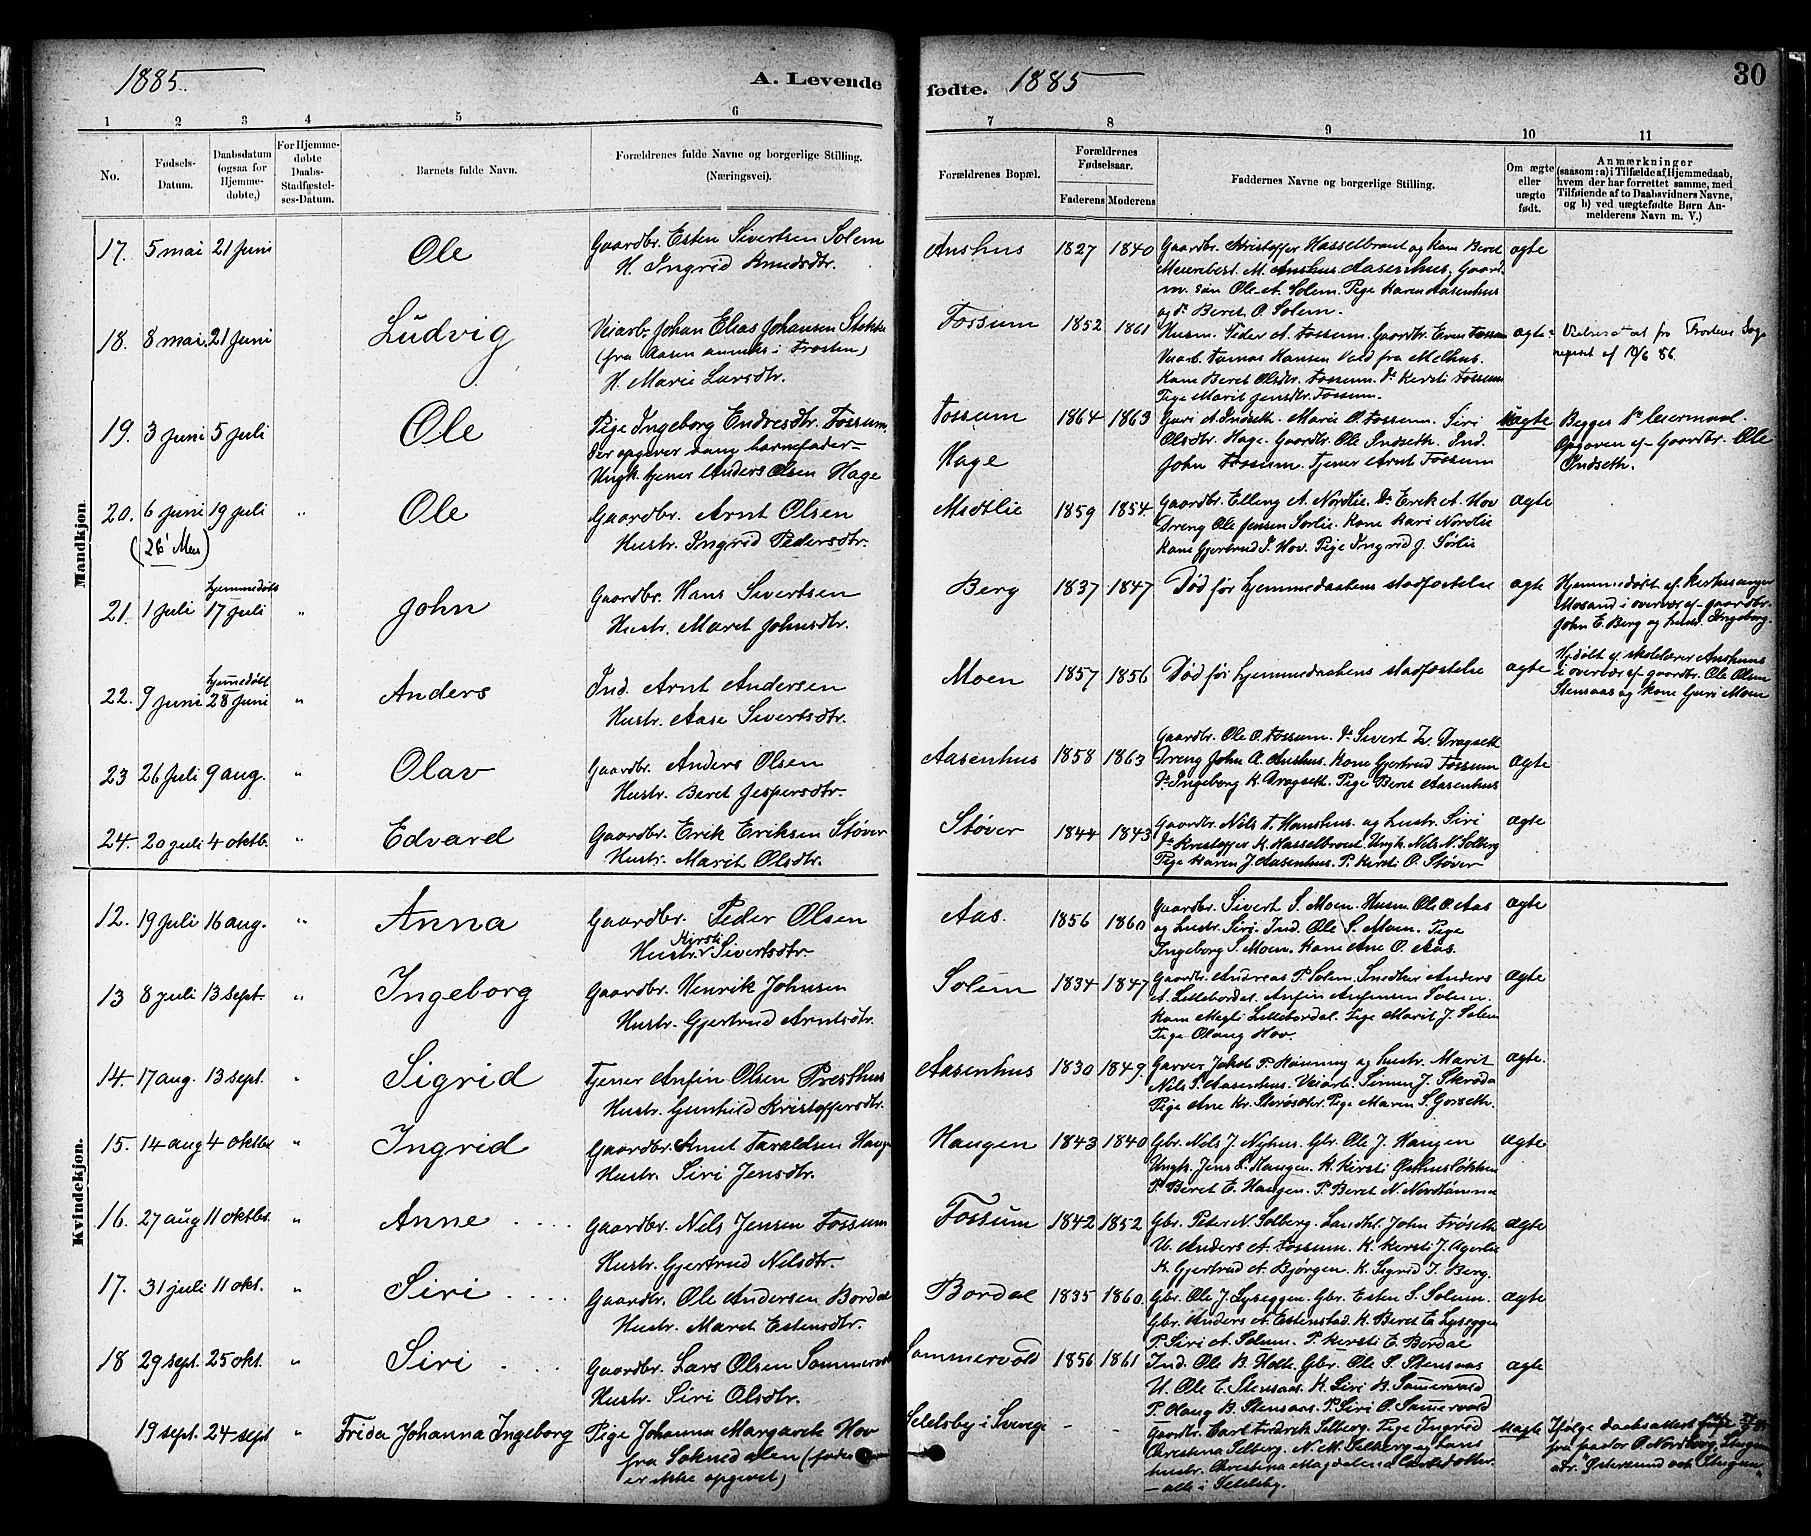 1885
A. Levende
fødte.
1885
30
1 2 3 4 5 6
7 8 9 10 11
No.
Fødsels-Datum.
Daabsdatum (ogsaa for Hjemmedøbte,)
For Hjemmedøbte Daabs-Stadfæstelses-Datum.
Barnets fulde Navn.
Forældrenes fulde Navne og borgerlige Stilling. (Næringsvei).
Forældrenes Bopæl.
Forældrenes Fødselsaar.
Faderens Moderens
Faddernes Navne og borgerlige Stilling.
Om ægte eller uægte født.
Anmærkninger (saasom: a) i Tilfælde af Hjemmedaab, hvem der har forrettet samme, med Tilføiende af to Daabsvidners Navne, og b) ved uægtefødte Børn Anmelderens Navn m. V.)
Mandkjøn
17. 5 mai 21 Juni Ole Gaardbr. Esten Sivertsen Solem
H. Ingrid Knudsdtr.
Anshus 1827 1840 Gaardbr. Kristoffer Hasselbraut og Kone Beret
M. Anshus. Aasenhus, Gaard
m. søn Ole A. Solem. Pige Karen Aasenhus
og do Beret O. Solem.
ægte
18. 8 mai 21 Juni Ludvig Veiarb. Johan Elias Johansen
(fra Aasen anneks i Frosten)
H. Marie Larsdtr.
Fossum 1852 1861 Husm. Peder A. Fossum. Gaardbr. Even Fossum
Veiarb. Tomas Hansen Vold fra Melhus.
Kone Beret Olsdtr. Fossum. do Kersti Fossum
Pige Marit Jensdtr. Fossum.
ægte
19. 3 Juni 5 Juli Ole Pige Ingeborg Endresdtr. Fossum,
Der opgiver som barnefader
Ungk. tjener Anders Olsen Hage
Fossum
Hage
1864 1863 Guri A. Indseth. Marit O. Fossum. Siri
Olsdtr. Hage. Gaardbr. Ole Indseth. Ind.
John Fossum. Tjener Arnt Fossum
uægte
Begges 1ste leiermaal.
Opgiven af Gaardbr. Ole
Indseth.
20. 6 Juni 19 Juli " Ole Gaardbr. Arnt Olsen
(26' Mai)
Hustr. Ingrid Pedersdtr.
Midtlie 1859 1854 Gaardbr. Elling A. Nordlie. Do Erik A. Hov
Dreng Ole Jensen Sørlie. Kone Kari Nordlie
Kone Gjertrud I. Hov. Pige Ingrid J. Sørlie
ægte
21. 1 Juli hjemmedøbt 17 Juli " John Gaardbr. Hans Sivertsen
Hustr. Marit Johnsdtr.
Berg 1837 1847 Død før hjemmedaabens stadfæstelse
ægte
Hjemmedøbt af Kirkesanger
Mosand i overvær af gaardbr.
John E. Berg og hust. Ingeborg.
22. 9 Juni hjemmedøbt 28 Juni " Anders Ind. Arnt Andersen
Hustr. Aase Sivertsdtr.
Moen 1857 1856 Død før hjemmedaabens stadfæstelse
ægte
Hjdøbt af skolelærer Anshus
i overvær af gaardbr. Ole Olsen
Stensaas og kone Guri Moen
23 26 Juli 9 aug. " Olav Gaardbr. Anders Olsen
Hustr. Beret Jespersdtr.
Aasenhus 1858 1863 Gaardbr. Ole O. Fossum. do Sivert L. Dragseth
Dreng John A. Anshus. Kone Gjertrud Fossum
do Ingeborg K. Dragseth. Pige Beret Aasenhus
ægte
24. 20 Juli 4 oktb. " Edvard Gaardbr. Erik Eriksen Støver
Hustr. Marit Olsdtr.
Støver 1844 1843 Gaardbr. Nils T. og hustr. Siri
do Kristoffer K. Hasselbraut. Ungk. Nils N. Solberg
Pige Karen J. Aasenhus. P. Kersti O. Støver
ægte
Kvindekjøn.
12. 19 Juli 16 aug. " Anna Gaardbr. Peder Olsen
Hustr. Kirsti Sivertsdtr.
Aas. 1856 1860 Gaardbr. Sivert S. Moen. Husm. Ole O. Aas
og hustr. Siri. Ind. Ole S. Moen. Pige
Ingeborg S. Moen. Kone Ane O. Aas.
ægte
13 8 Juli 13 sept. " Ingeborg Gaardbr. Henrik Johnsen
Hustr. Gjertrud Arntsdtr.
Solem 1834 1847 Gaardbr. Andreas P. Solem. Snedker Anders
A. Lillebordal. Anfin Anfinsen Solem.
Kone Lillebordal. Pige Marit J. Solem
Pige Olaug Hov.
ægte
14. 17 aug. 13 sept. " Sigrid Tjener Anfin Olsen Presthus
Hustr. Gunhild Kristoffersdtr.
Aasenhus 1830 1849 Garver Jakob P. og hustr. Marit
Nils P. Aasenhus. Veiarb. Simen J.
Pige Ane Kr. Pige Maren S. Gorseth.
ægte.
15. 14 aug 4 oktbr " Ingrid Gaardbr. Arnt Taraldsen Haugen
Hustr. Siri Jensdtr.
Haugen 1843 1840 Gbr. Nils J. Nyhus. Gbr. Ole J. Haugen
Ungk. Jens L. Haugen. K. Kirsti Østhusløkken
P. Beret E. Haugen. P. Beret N. Nordtømme
ægte
16. 27 aug 11 oktbr. " Anne Gaardbr. Nils Jensen Fossum
Hustr. Gjertrud Nilsdtr.
Fossum 1842 1852 Gbr. Peter N. Solberg. Landhl. John Frøseth
U. Anders A. Fossum. K. Kersti J. Agerlie
K. Gjertrud A. Bjørgen. K. Sigrid I. Berg.
ægte
17. 31 Juli 11 okt. " Siri Gaardbr. Ole Andersen Bordal
Hustr. Marit Estensdtr.
Bordal 1835 1860. Gbr. Ole J. Lyseggen. Gbr. Esten S. Solem.
Gbr. Anders A. Estenstad. K. Beret E. Lyseggen
P. Siri A. Solem. P. Kersti E. Bordal
ægte
18 29 sept. 25 okt. " Siri Gaardbr. Lars Olsen Sommervold
Hustr. Siri Olsdtr.
Sommervold 1856 1861 Ind. Ole B. Holte. Gbr. Ole S. Stensaas
U. Ole E. Stensaas. K. Siri B. Sommervold
P. Haug B. Stensaas. P. Siri O. Sommervold
ægte
19 sept. 24 sept " Frida Johanna Ingeborg Pige Johanna Margarete Hov
fra Soknedalen (fader
er ikke opgivet)
i Sverige - Gaardbr. Carl Fredrik Selberg. Pige Ingrid
Christina Selberg. N. M. Selberg og hans
hustr. Christina Magdalena
— alle i
uægte
Ifølge daabsattest
fra pastor O. Nordborg,
adr. "Østersund och